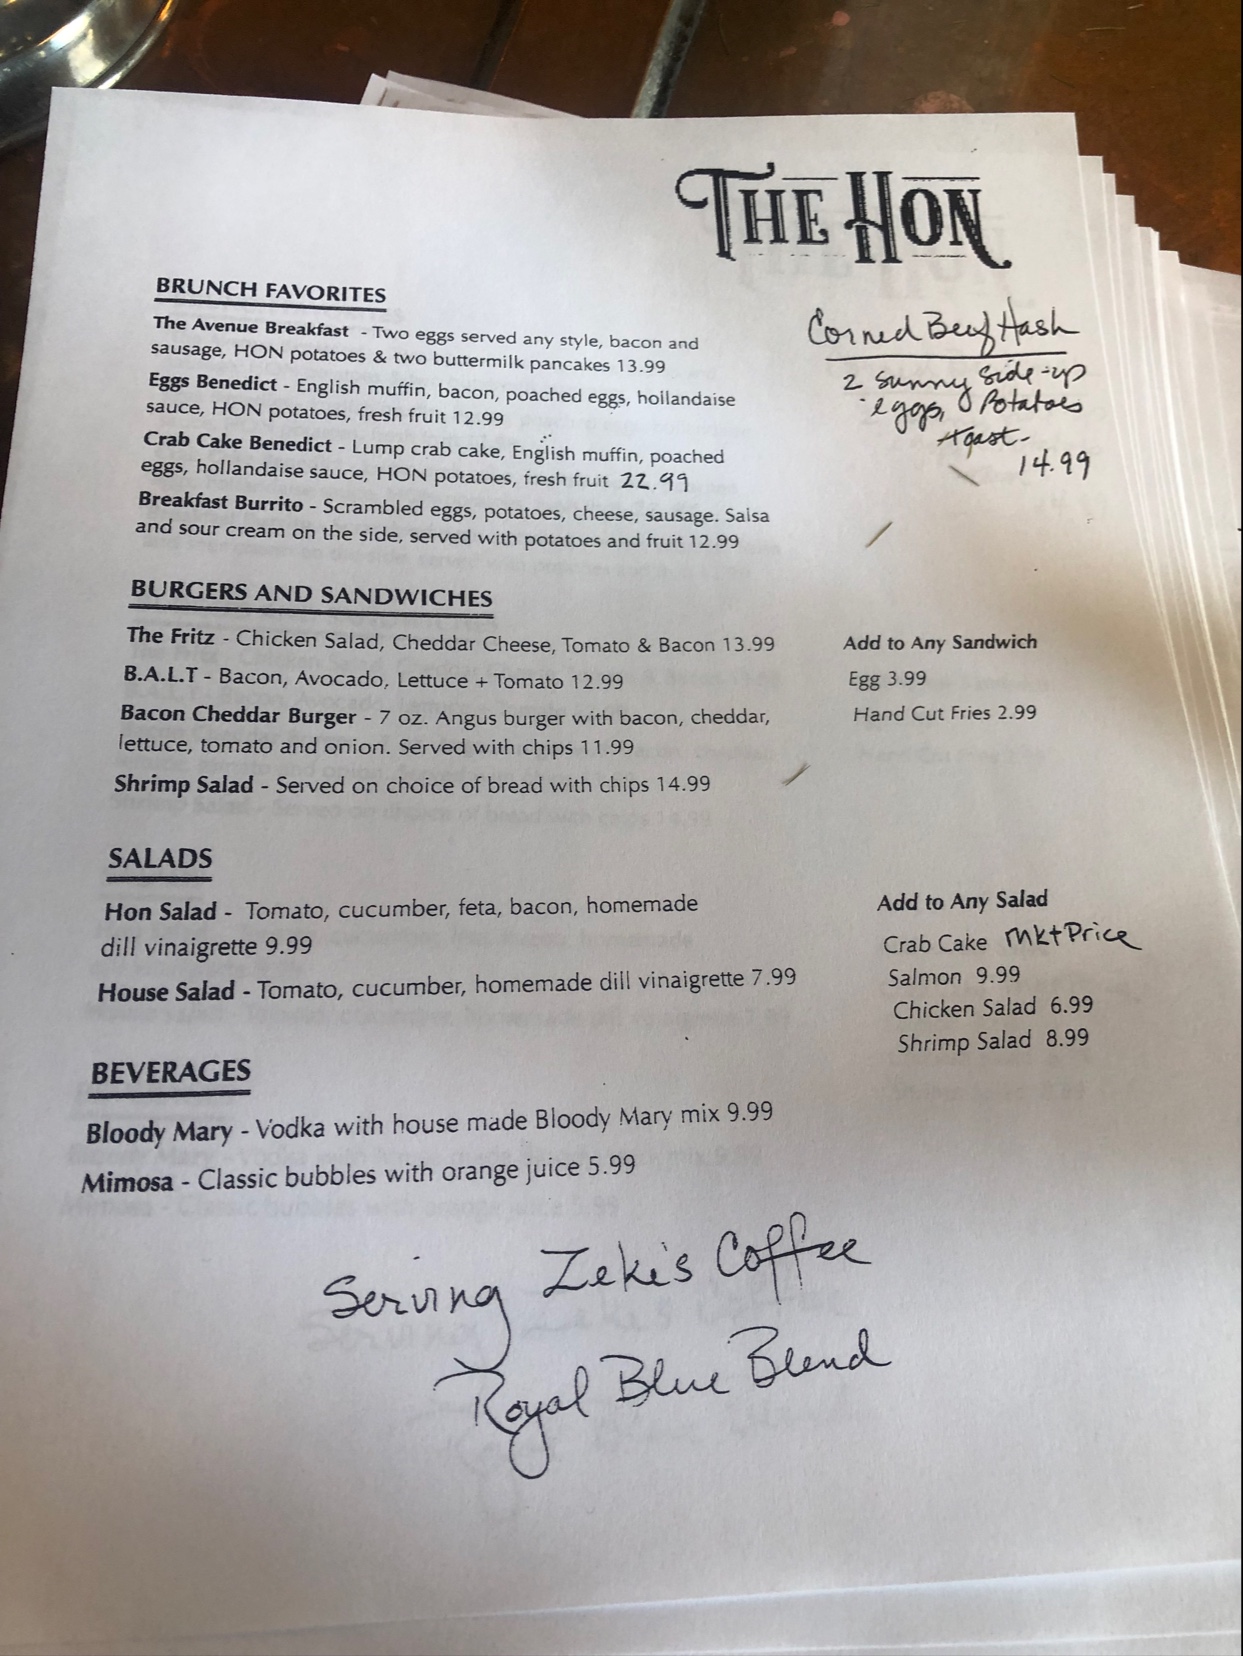 THE HON
BRUNCH FAVORITES
The Avenue Breakfast - Two eggs served any style, bacon and
sausage, HON potatoes & two buttermilk pancakes 13.99
Eggs Benedict - English muffin, bacon, poached eggs, hollandaise
sauce, HON potatoes, fresh fruit 12.99
Crab Cake Benedict - Lump crab cake, English muffin, poached
eggs, hollandaise sauce, HON potatoes, fresh fruit 22.99
Breakfast Burrito - Scrambled eggs, potatoes, cheese, sausage. Salsa
and sour cream on the side, served with potatoes and fruit 12.99
Corned Beef Hash
2 sunny side-up
eggs, Potatoes
toast-
14.99
BURGERS AND SANDWICHES
The Fritz - Chicken Salad, Cheddar Cheese, Tomato & Bacon 13.99
B.A.L.T - Bacon, Avocado, Lettuce + Tomato 12.99
Bacon Cheddar Burger - 7 oz. Angus burger with bacon, cheddar,
lettuce, tomato and onion. Served with chips 11.99
Shrimp Salad - Served on choice of bread with chips 14.99
Add to Any Sandwich
Egg 3.99
Hand Cut Fries 2.99
SALADS
Hon Salad - Tomato, cucumber, feta, bacon, homemade
dill vinaigrette 9.99
House Salad - Tomato, cucumber, homemade dill vinaigrette 7.99
Add to Any Salad
Crab Cake mkt Price
Salmon 9.99
Chicken Salad 6.99
Shrimp Salad 8.99
BEVERAGES
Bloody Mary - Vodka with house made Bloody Mary mix 9.99
Mimosa - Classic bubbles with orange juice 5.99
Serving Zeke's Coffee
Royal Blue Blend